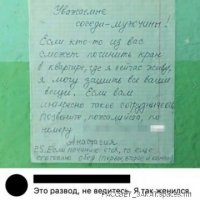 Уважаемые
соседи-мужчины!
Если кто-то из вас
сможет починить кран
в квартире, где я сейчас живу,
я могу зашить все ваши
вещи. Если вам
интересно такое сотрудничество
Позвоните, пожалуйста, по
номеру
Анастасия
P.S. Если почините его, то еще
приготовлю обед (первое, второе и компот)
Это развод, не ведитесь. Я так женился.